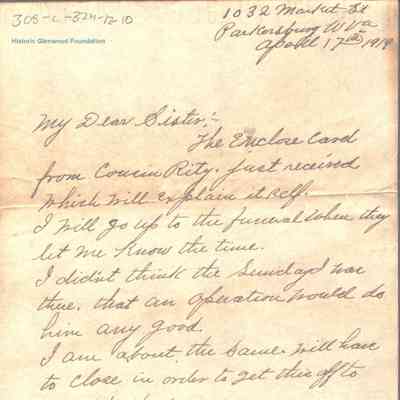 308-C-324-12-10
Historic Glenwood Foundation
1032 Market St
Parkersburg W Va
April 17th, 1919
My Dear Sister;-
The Enclose Card
from Cousin Rity. just received
which will explain itself.
I will go up to the funeral when they
let me know the time.
I didn't think the Sunday I was
there, that an operation would do
him any good.
I am about, the same. Will have
to close in order to get this off to